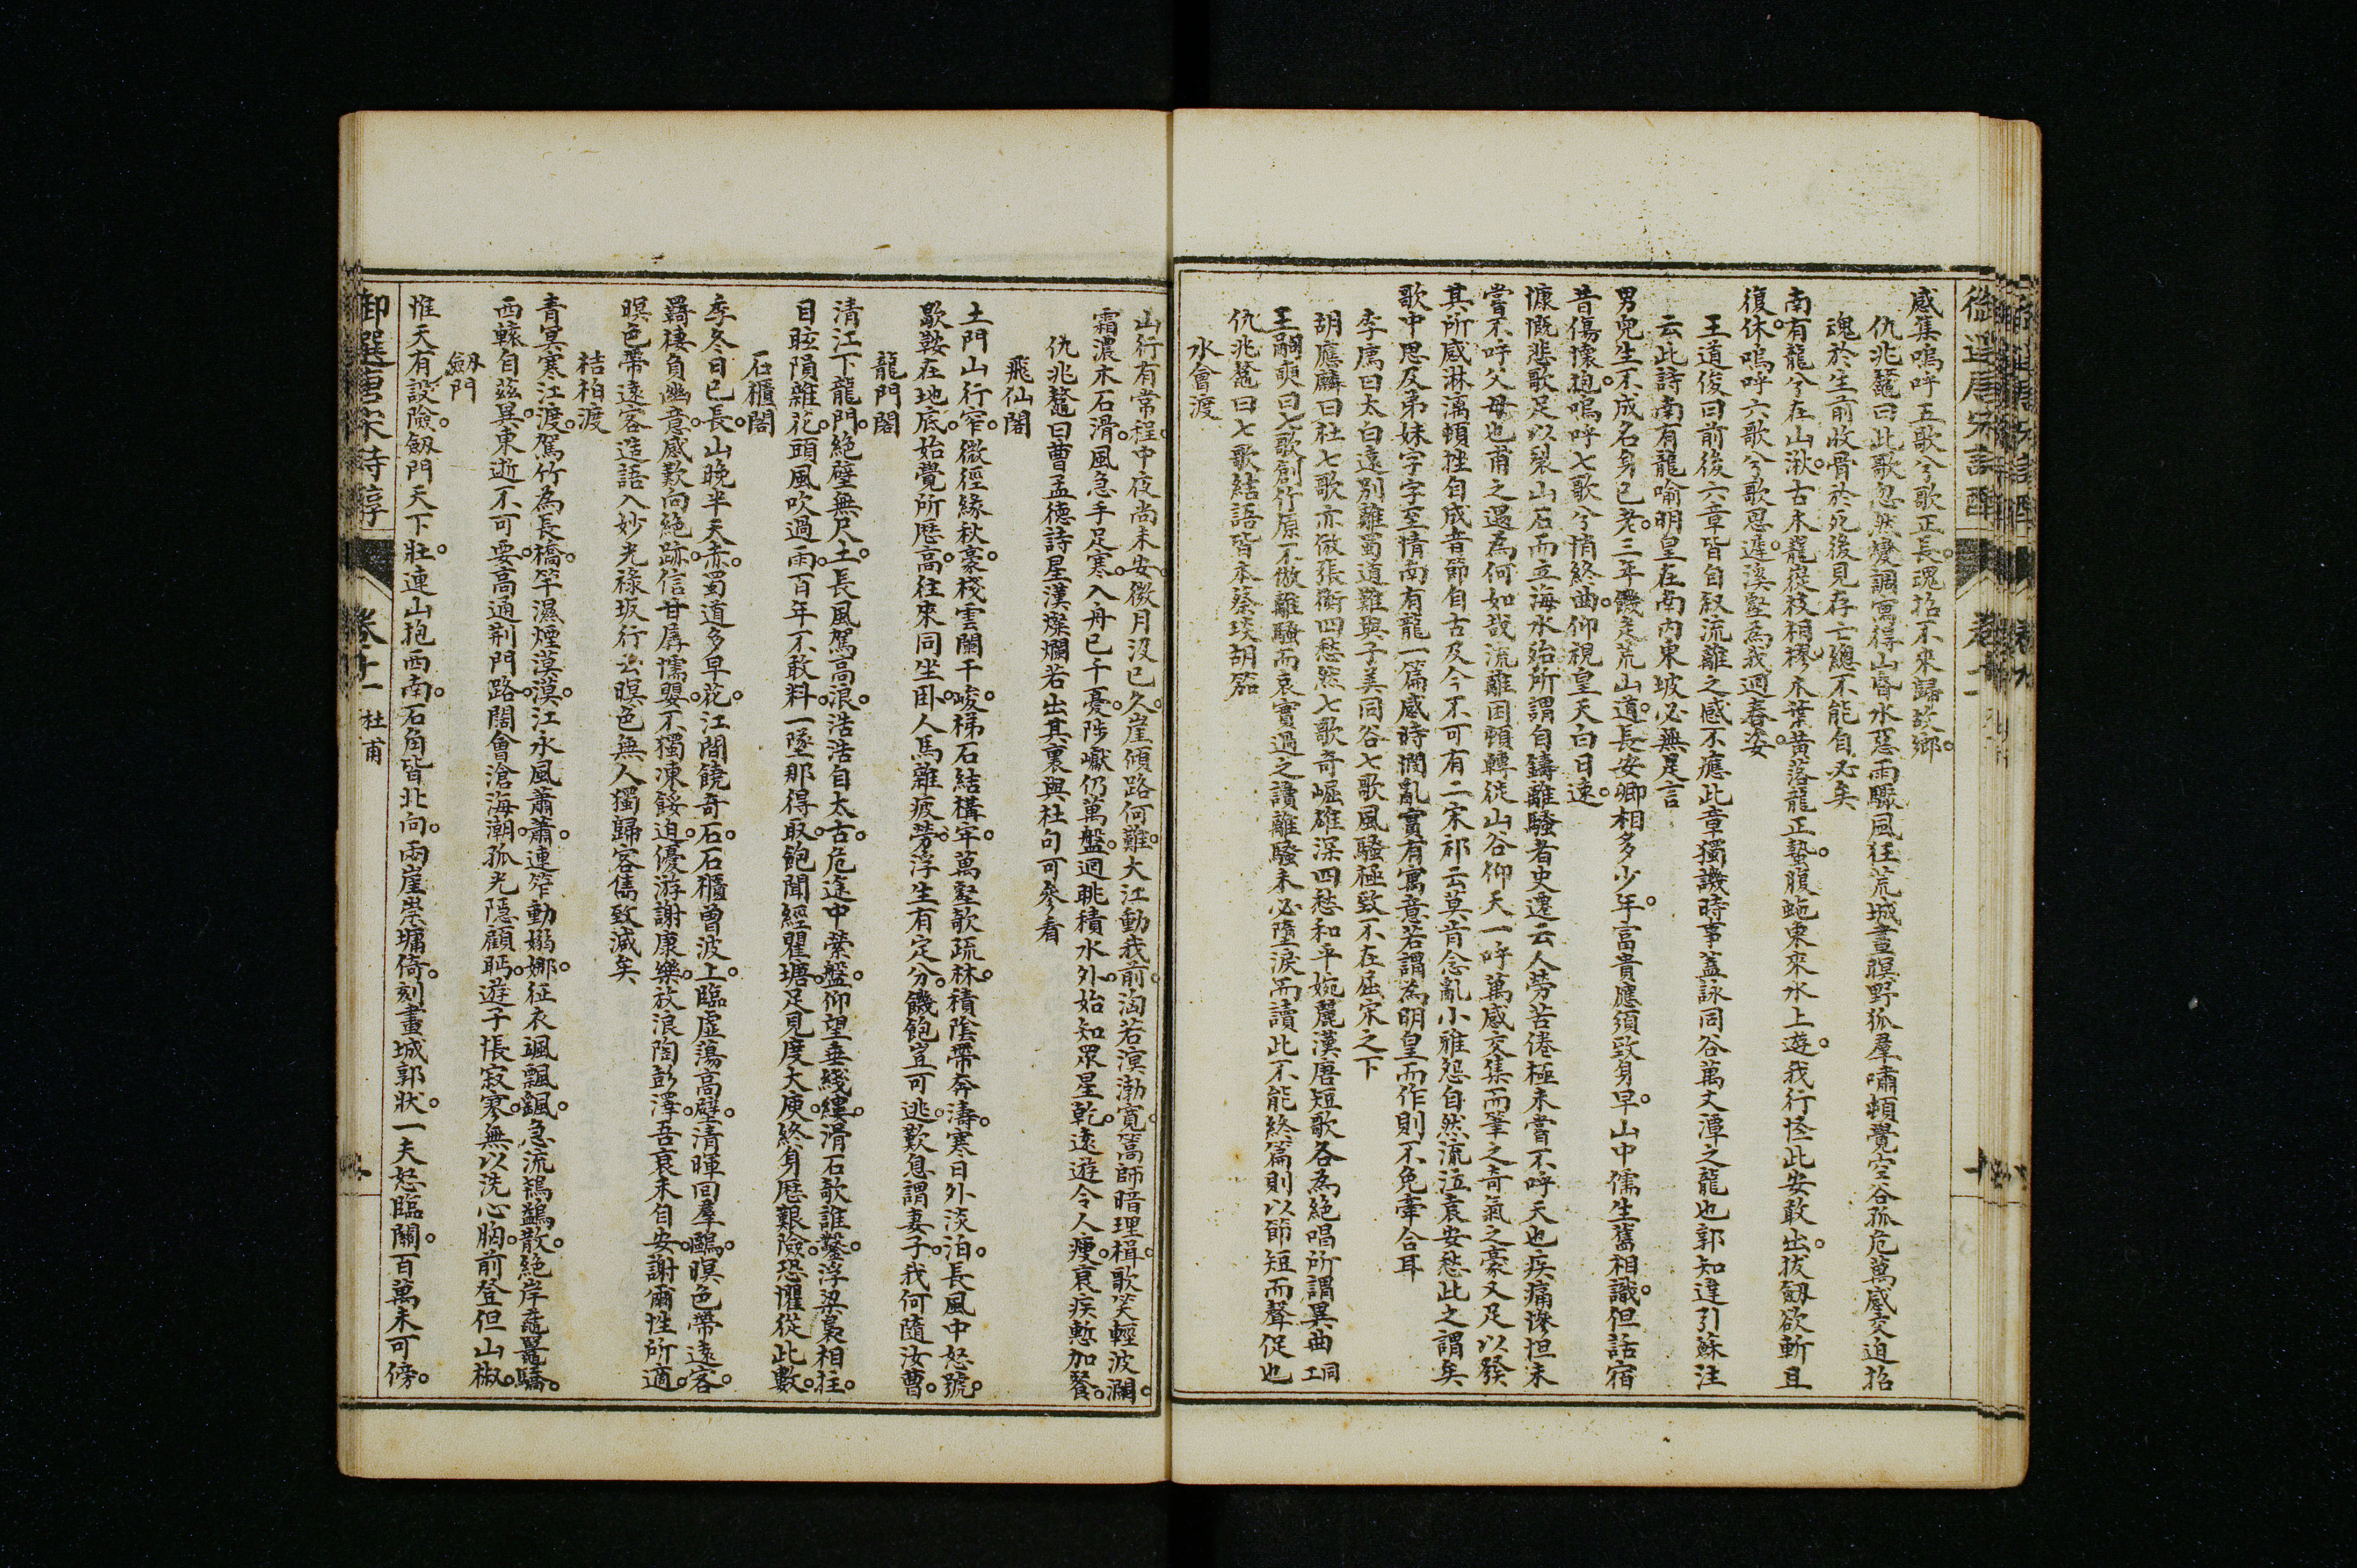 感集嗚呼五歌兮歌正長魂招不來歸故鄉
仇兆鼇曰此歌忽然變調寫得山昏水惡雨驟風狂荒城晝暝野狐羣嘯頓覺空谷孤危萬感交迫招
魂於生前收骨於死後見存亡總不能自必矣
南有龍兮在山湫古木巃嵸枝相樛木葉黃落龍正蟄蝮蛇東來水上遊我行怪此安敢出拔劔欲斬且
復休嗚呼六歌兮歌思遲溪壑為我迴春姿
王道俊曰前後六章皆自叙流離之感不應此章獨譏時事蓋詠同谷萬丈潭之龍也郭知達引蘇注
云此詩南有龍喻明皇在南內東坡必無是言
男兒生不成名身已老三年饑走荒山道長安卿相多少年富貴應須致身早山中儒生舊相識但話宿
昔傷懷抱嗚呼七歌兮悄終曲仰視皇天白日速
慷慨悲歌足以裂山石而立海水殆所謂自鑄離騷者史遷云人勞苦倦極未嘗不呼天也疾痛慘怛未
嘗不呼父母也甫之遇為何如哉流離困頓轉徙山谷仰天一呼萬感交集而筆之奇氣之豪又足以發
其所感淋漓頓挫自成音節自古及今不可有二宋祁云莫肯念亂小雅怨自然流泣袁安愁此之謂矣
歌中思及弟妹字字至情南有龍一篇感時潤亂實有寓意若謂為明皇而作則不免牽合耳
李廌曰太白遠別離蜀道難與子美同谷七歌風騷極致不在屈宋之下
胡應麟曰杜七歌亦倣張衡四愁然七歌奇崛雄深四愁和平婉麗漢唐短歌各為絕唱所謂異曲同工
王嗣奭曰七歌創作原不倣離騷而哀實過之讀離騷未必墮淚而讀此不能終篇則以節短而聲促也
仇兆鼇曰七歌結語皆本蔡琰胡笳
水會渡
山行有常程中夜尚未安微月沒已久崖傾路何難大江動我前洶若溟渤寬篙師暗理楫歌笑輕波瀾
霜濃木石滑風急手足寒入舟已千憂陟巘仍萬盤迴眺積水外始知眾星乾遠遊令人瘦衰疾慙加餐
仇兆鼇曰曹孟德詩星漢燦爛若出其裏與杜句可參看
飛仙閣
土門山行窄微徑緣秋豪棧雲闌干峻梯石結構牢萬壑欹疏林積陰帶奔濤寒日外淡泊長風中怒號
歇鞍在地底始覺所歷高往來同坐臥人馬雜疲勞浮生有定分饑飽豈可逃歎息謂妻子我何隨汝曹
龍門閣
清江下龍門絕壁無尺土長風駕高浪浩浩自太古危途中縈盤仰望垂綫縷滑石欹誰鑿浮梁裊相拄
目眩隕雜花頭風吹過雨百年不敢料一墜那得取飽聞經瞿塘足見度大庾終身歷艱險恐懼從此數
石櫃閣
季冬日已長山晚半天赤蜀道多早花江間饒奇石石櫃曾波上臨虛蕩高壁清暉回羣鷗暝色帶遠客
羇棲負幽意感歎向絕跡信甘孱懦嬰不獨凍餒迫優游謝康樂放浪陶彭澤吾衰未自安謝爾性所適
暝色帶遠客造語入妙光祿坂行云暝色無人獨歸客雋致減矣
桔柏渡
青冥寒江渡駕竹為長橋竿濕煙漠漠江永風蕭蕭連筰動嫋娜征衣颯飄飖急流鴇鷁散絕岸黿鼉驕
西轅自茲異東逝不可要高通荆門路闊會滄海潮孤光隱顧眄遊子悵寂寥無以洗心胸前登但山椒
劔門
惟天有設險劔門天下壯連山抱西南石角皆北向兩崖崇墉倚刻畫城郭狀一夫怒臨關百萬未可傍
御選唐宋詩醇
杜甫